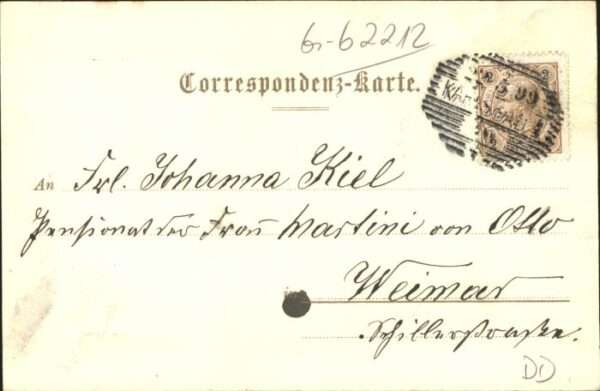 6-62212
Correspondenz-Karte.
99
An Frl. Johanna Kiel
Pensionat der Frau Martini von Otto
Weimar
Schillerstraße.
DD